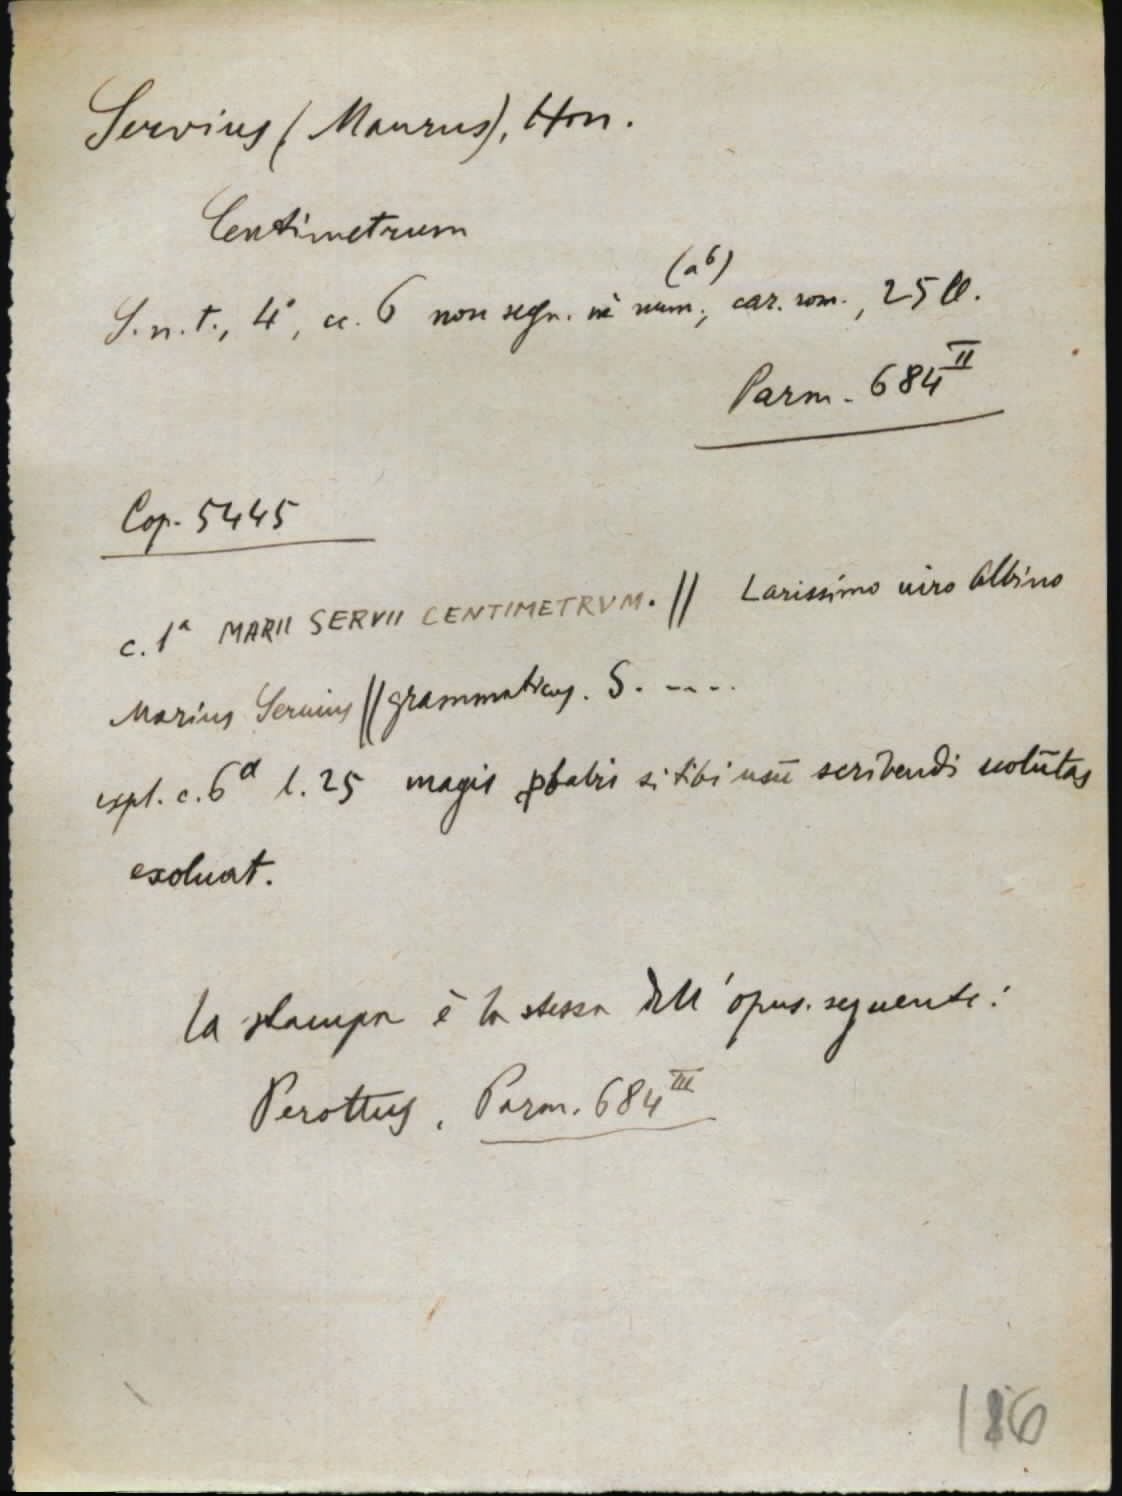 Servius (Maurus), Hon.
Centimetrum
(a⁶)
S.n.t., 4°, cc. 6 non segn. nè num.; car. rom., 25 ll.
Parm. 684ᴵᴵ
Cop. 5445
c. 1ᵃ MARII SERVII CENTIMETRVM. // Larissimo uiro Albino
Marius Seruius // grammaticus. S. ....
expl. c. 6ᵃ l. 25 magis ꝓbabis si tibi usū scribendi uolūtas
exoluat.
La stampa è la stessa dell'opus. seguente:
Perottus, Parm. 684ᴵᴵᴵ
186